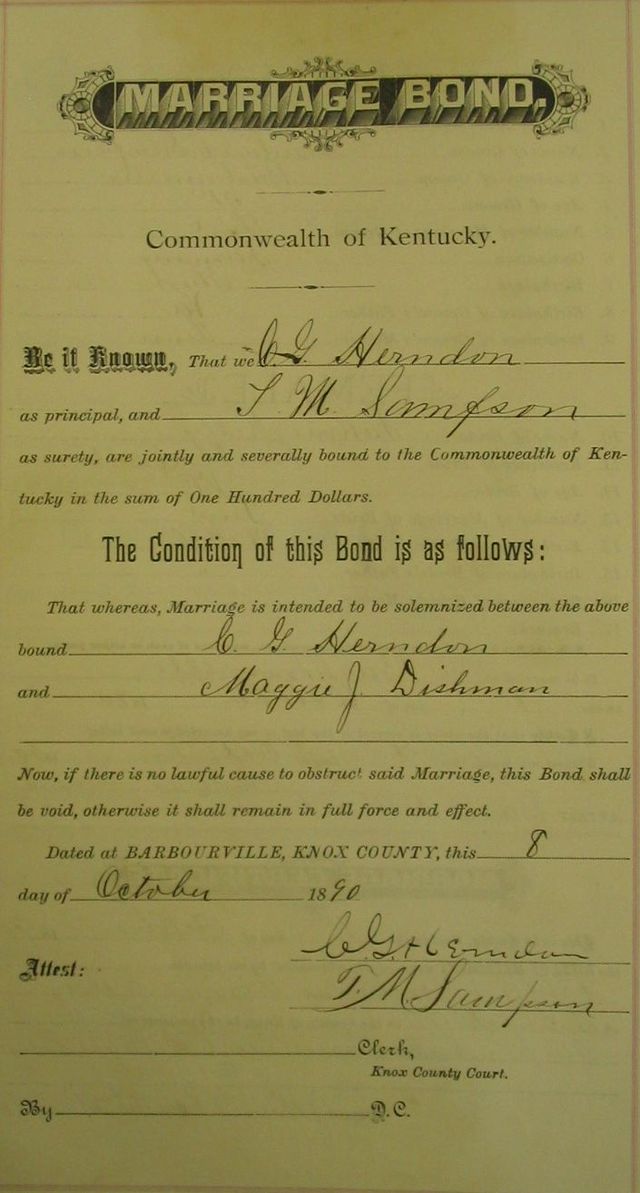 MARRIAGE BOND.
Commonwealth of Kentucky.
Be it Known, That we C. G. Herndon
as principal, and T. M. Sampson
as surety, are jointly and severally bound to the Commonwealth of Ken-
tucky in the sum of One Hundred Dollars.
The Condition of this Bond is as follows:
That whereas, Marriage is intended to be solemnized between the above
bound C. G Herndon
and Maggie J. Dishman
Now, if there is no lawful cause to obstruct said Marriage, this Bond shall
be void, otherwise it shall remain in full force and effect.
Dated at BARBOURVILLE, KNOX COUNTY, this 8
day of October 1890
C. G. Herndon
Attest:
T. M. Sampson
Clerk,
Knox County Court.
By D. C.